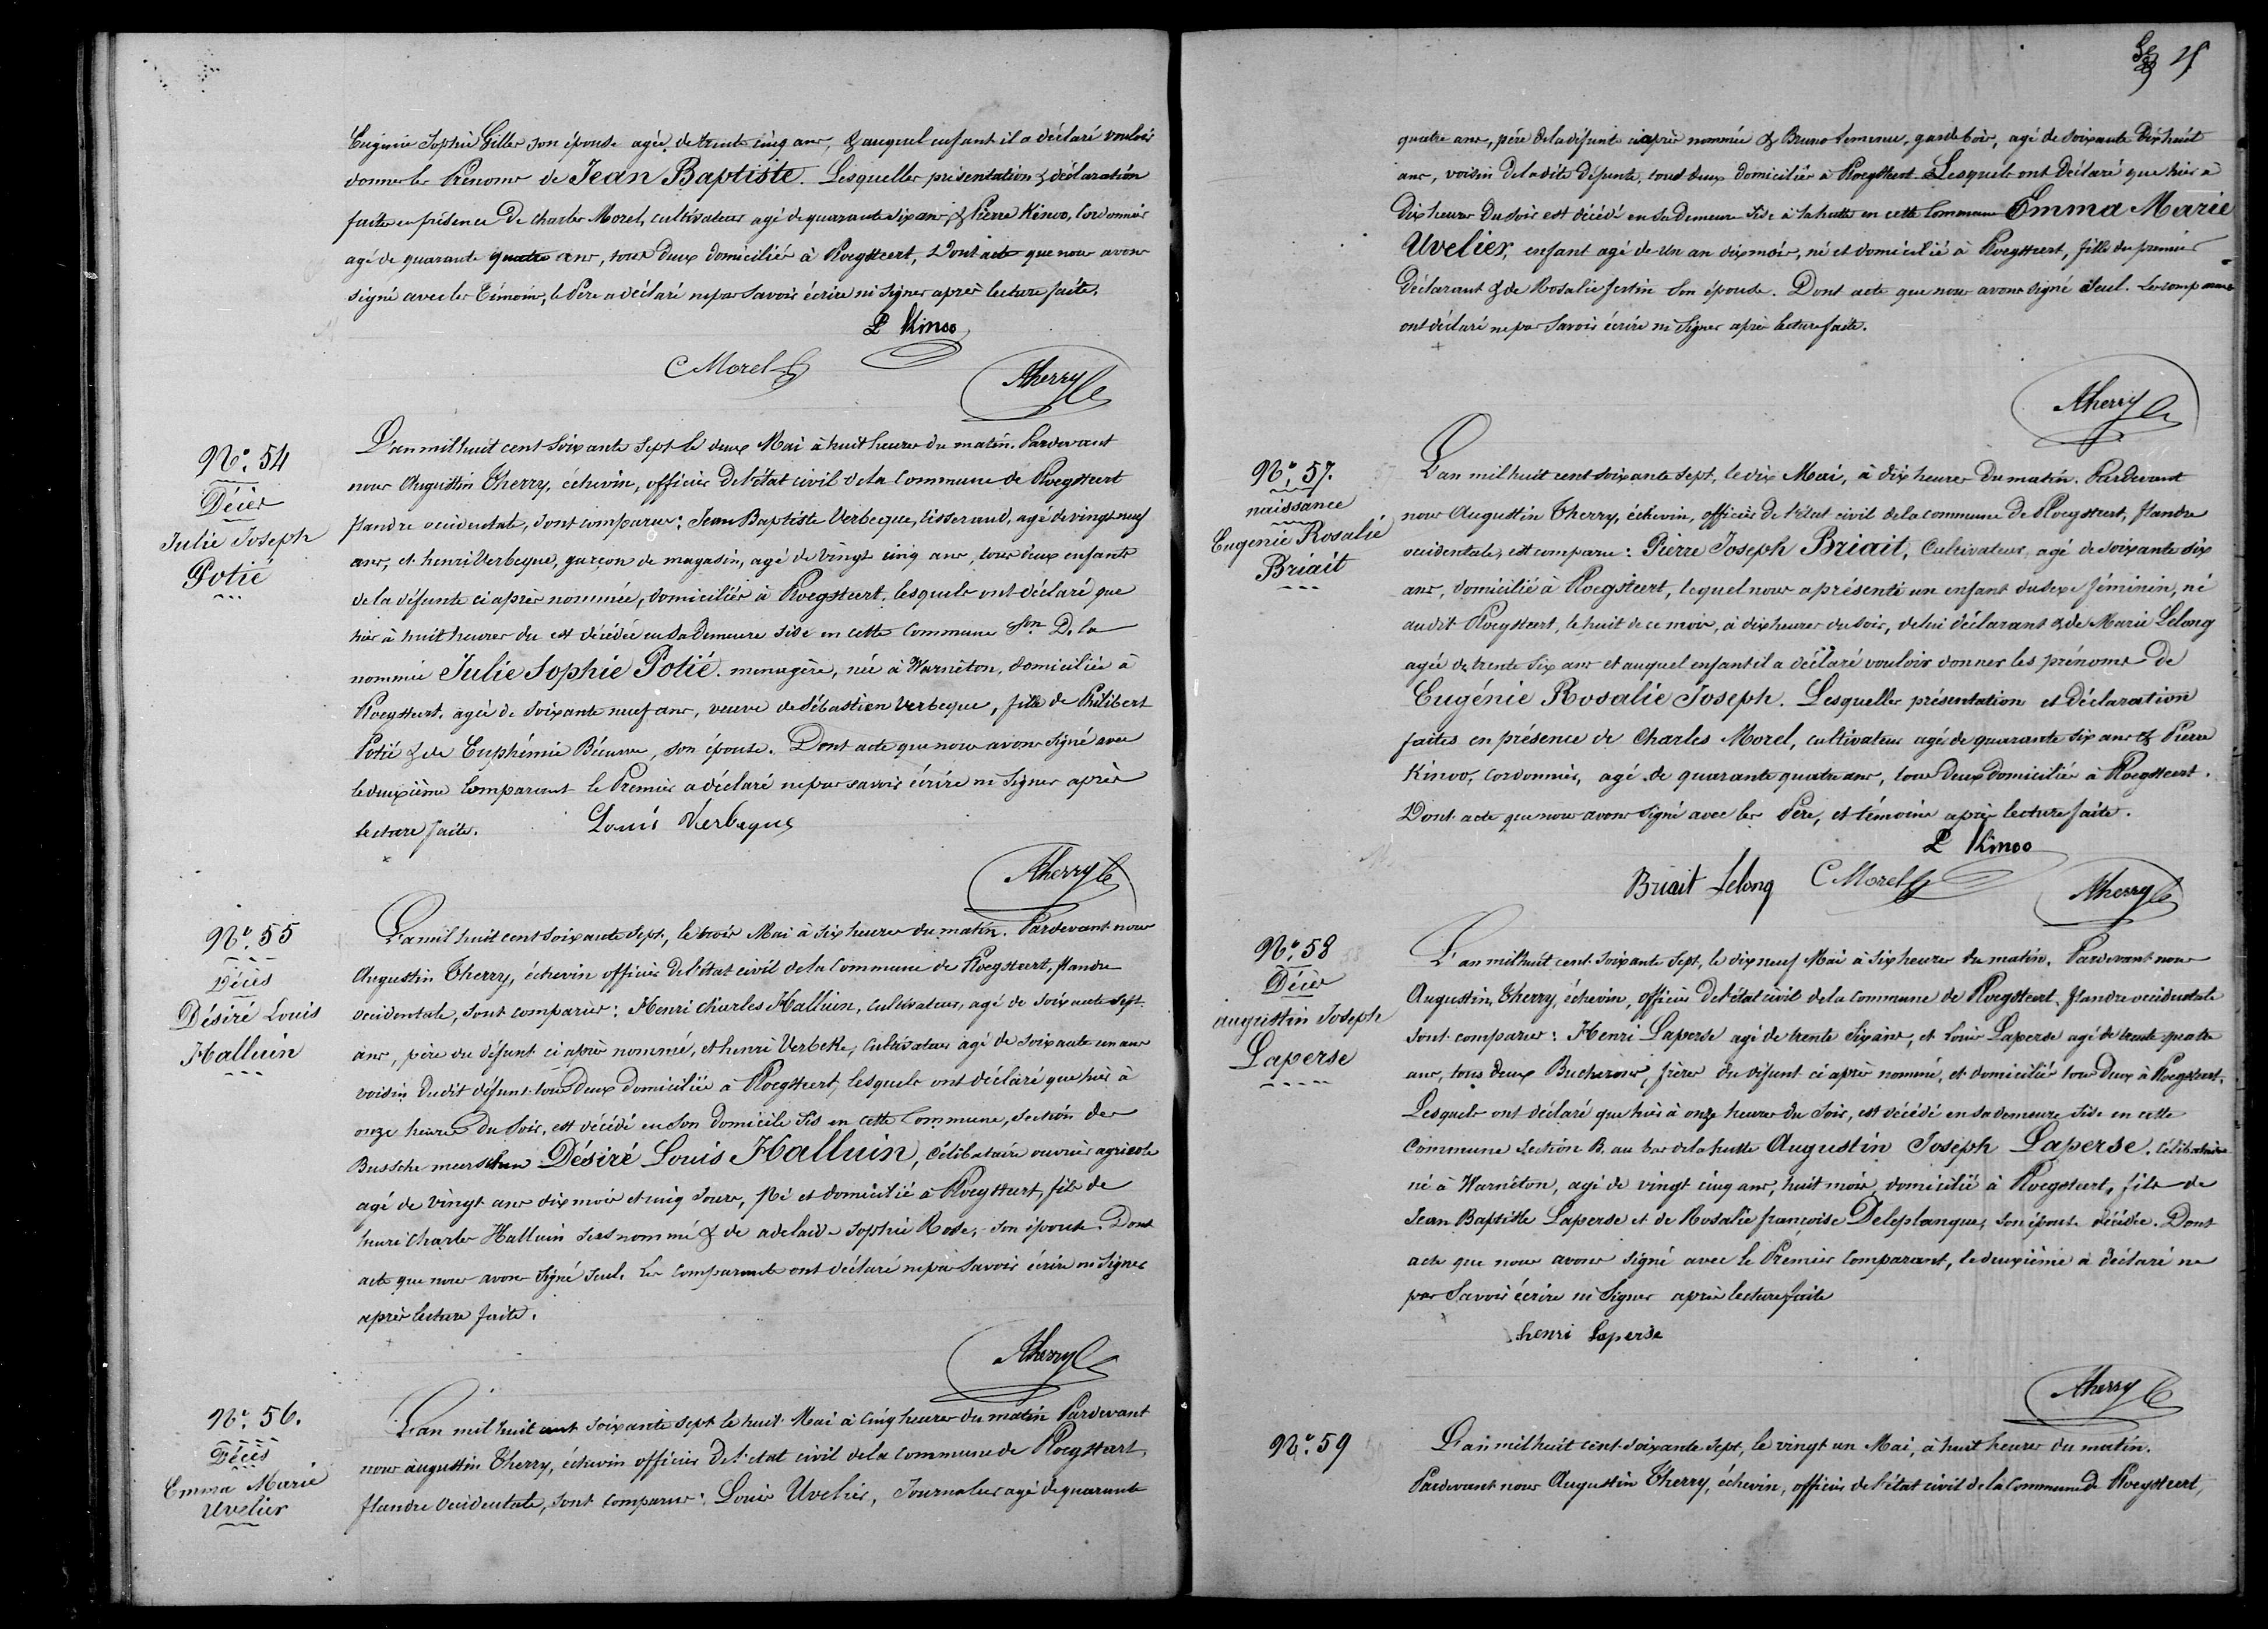 Eugénie Sophie Gille son épouse agée de trente cinq ans, & auquel enfant il a déclaré vouloir
donner les Prénoms de Jean Baptiste. Lesquelles présentation & déclaration
faites en présence de Charles Morel, cultivateur agé de quarante six ans, & Pierre Kinoo, Cordonnier
agé de quarante quatre ans, tous deux domiciliés à Ploegsteert, Dont acte que nous avons
signé avec les Témoins, le Père a déclaré ne pas savoir écrire ni signer après lecture faite.
P Kinoo
C Morel
Atherry
N° 54
Décès
Julie Joseph
Potié
L'an mil huit cent soixante sept le deux Mai à huit heures du matin. Pardevant
nous Augustin Therry, échevin, officier de l'état civil de la Commune de Ploegsteert
flandre occidentale, sont comparus: Jean Baptiste Verbeque, tisserand, agé de vingt neuf
ans, et henri Verbeque, garçon de magasin, agé de vingt cinq ans, tous deux enfants
de la défunte ci après nommée, domiciliés à Ploegsteert, lesquels ont déclaré que
hier à huit heures du est décédée en sa demeure sise en cette commune Son D. la
nommée Julie Sophie Potié. menagère, née à Warnêton, domiciliée à
Ploegsteert, agée de soixante neuf ans, veuve de Sébastien Verbeque, fille de Philibert
Potié & de Euphémie son épouse. Dont acte que nous avons signé avec
le deuxième Comparant le Premier a déclaré ne pas savoir écrire ni signer après
lecture faite. Louis Verbeque
Atherry
N° 55
Décès
Désiré Louis
Halluin
L'an mil huit cent soixante sept, le trois Mai à six heures du matin. Pardevant nous
Augustin Therry, échevin officier de l'état civil de la Commune de Ploegsteert, flandre
occidentale, sont comparus: Henri Charles Halluin, Cultivateur, agé de soixante sept
ans, père du défunt ci après nommé, et henri Verbeke, Cultivateur agé de soixante un ans
voisin dudit défunt tous deux domiciliés à Ploegsteert, lesquels ont déclaré que hier à
onze heures du soir, est décédé en son domicile sis en cette Commune, section des
Bussche meerschen Désiré Louis Halluin, célibataire ouvrier agricole
agé de vingt ans dix mois et cinq jours, Né et domicilié à Ploegsteert, fils de
henri Charles Halluin susnommé & de adelaide sophie Rose, son épouse. Dont
acte que nous avons signé seul. Les Comparants ont déclaré ne pas savoir écrire ni signer
après lecture faite.
Atherry
N° 56.
Décès
Emma Marie
Uvelier
L'an mil huit cent soixante sept le huit Mai à cinq heures du matin Pardevant
nous augustin Therry, échevin officier de l'état civil de la commune de Ploegsteert,
flandre occidentale, sont comparus: Louis Uvelier, Journalier agé de quarante
quatre ans, père de la défunte ci après nommée & Bruno garde bois, agé de soixante dix huit
ans, voisin de ladite défunte, tous deux domiciliés à Ploegsteert Lesquels ont déclaré que hier à
dix heures du soir est décédé en sa demeure sise à la hutte en cette Commune Emma Marie
Uvelier, enfant agé de un an dix mois, né et domicilié à Ploegsteert, fille du premier
déclarant & de Rosalie son épouse. Dont acte que nous avons signé seul. Les
ont déclaré ne pas savoir écrire ni signer après lecture faite.
Atherry
N° 57.
naissance
Eugenie Rosalie
Briait
L'an mil huit cent soixante sept, le dix Mai, à dix heures du matin. Pardevant
nous Augustin Therry, échevin, officier de l'état civil de la commune de Ploegsteert, flandre
occidentale, est comparu: Pierre Joseph Briait, Cultivateur, agé de soixante six
ans, domicilié à Ploegsteert, lequel nous a présenté un enfant du sexe féminin, né
audit Ploegsteert, le huit de ce mois, à dix heures du soir, de lui déclarant & de Marie Lelong
agée de trente six ans et auquel enfant il a déclaré vouloir donner les prénoms de
Eugénie Rosalie Joseph. Lesquelles présentation et déclaration
faites en présence de Charles Morel, cultivateur agé de quarante six ans & Pierre
Kinoo, cordonnier, agé de quarante quatre ans, tous deux domiciliés à Ploegsteert.
Dont acte que nous avons signé avec les Père, et témoins après lecture faite.
P Kinoo
Briait Lelong C Morel Atherry
N° 58
Décès
augustin Joseph
Laperse
L'an mil huit cent soixante sept, le dix neuf Mai à six heures du matin. Pardevant nous
Augustin, Therry, échevin, officier de l'état civil de la commune de Ploegsteert, flandre occidentale
sont comparus: Henri Laperse agé de trente six ans, et Louis Laperse agé de trente quatre
ans, tous deux Bucherons, frères du défunt ci après nommé, et domiciliés tous deux à Ploegsteert.
Lesquels ont déclaré que hier à onze heures du soir, est décédé en sa demeure sise en cette
Commune Section B. au bas de la hutte Augustin Joseph Laperse. Célibataire
né à Warnêton, agé de vingt cinq ans, huit mois, domicilié à Ploegsteert, fils de
Jean Baptiste Laperse et de Rosalie françoise Deleplanque, son épouse décédée. Dont
acte que nous avons signé avec le Premier Comparant, le deuxième a déclaré ne
pas savoir écrire ni signer après lecture faite
henri Laperse
Atherry
N° 59
L'an mil huit cent soixante sept, le vingt un Mai, à huit heures du matin.
Pardevant nous Augustin Therry, échevin, officier de l'état civil de la Commune de Ploegsteert,